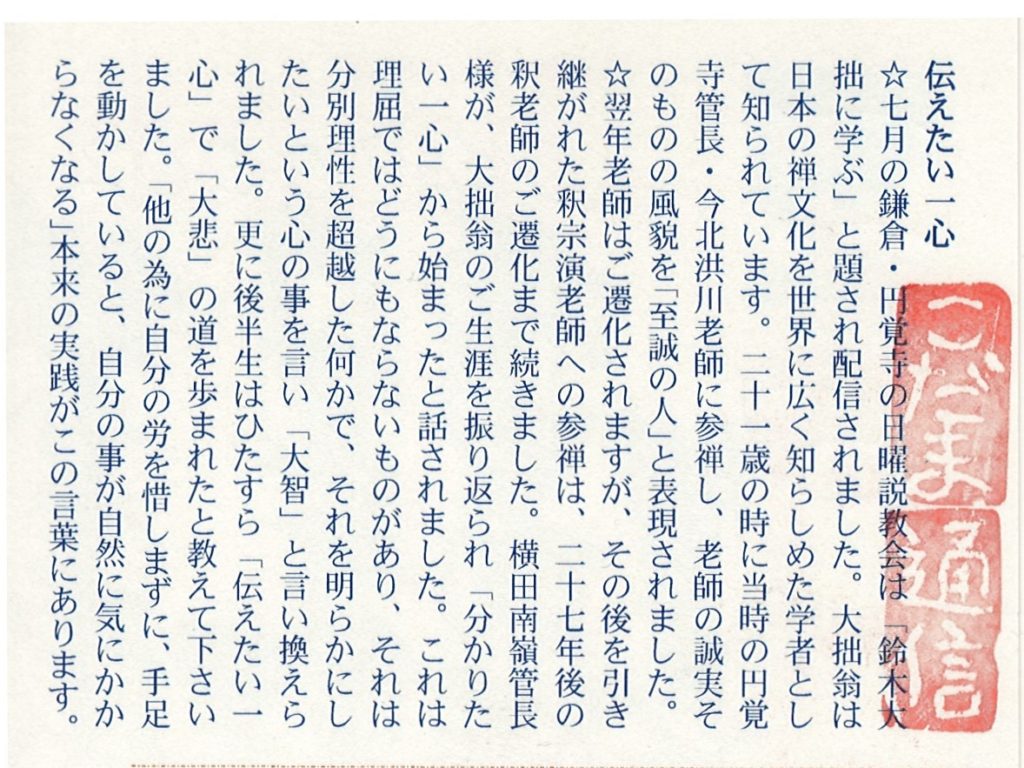 伝えたい一心
☆七月の鎌倉・円覚寺の日曜説教会は「鈴木大
拙に学ぶ」と題され配信されました。大拙翁は
日本の禅文化を世界に広く知らしめた学者とし
て知られています。二十一歳の時に当時の円覚
寺管長・今北洪川老師に参禅し、老師の誠実そ
のものの風貌を「至誠の人」と表現されました。
☆翌年老師はご遷化されますが、その後を引き
継がれた釈宗演老師への参禅は、二十七年後の
釈老師のご遷化まで続きました。横田南嶺管長
様が、大拙翁のご生涯を振り返られ「分かりた
い一心」から始まったと話されました。これは
理屈ではどうにもならないものがあり、それは
分別理性を超越した何かで、それを明らかにし
たいという心の事を言い「大智」と言い換えら
れました。更に後半生はひたすら「伝えたい一
心」で「大悲」の道を歩まれたと教えて下さい
ました。「他の為に自分の労を惜しまずに、手足
を動かしていると、自分の事が自然に気にかか
らなくなる」本来の実践がこの言葉にあります。
こだま
通信